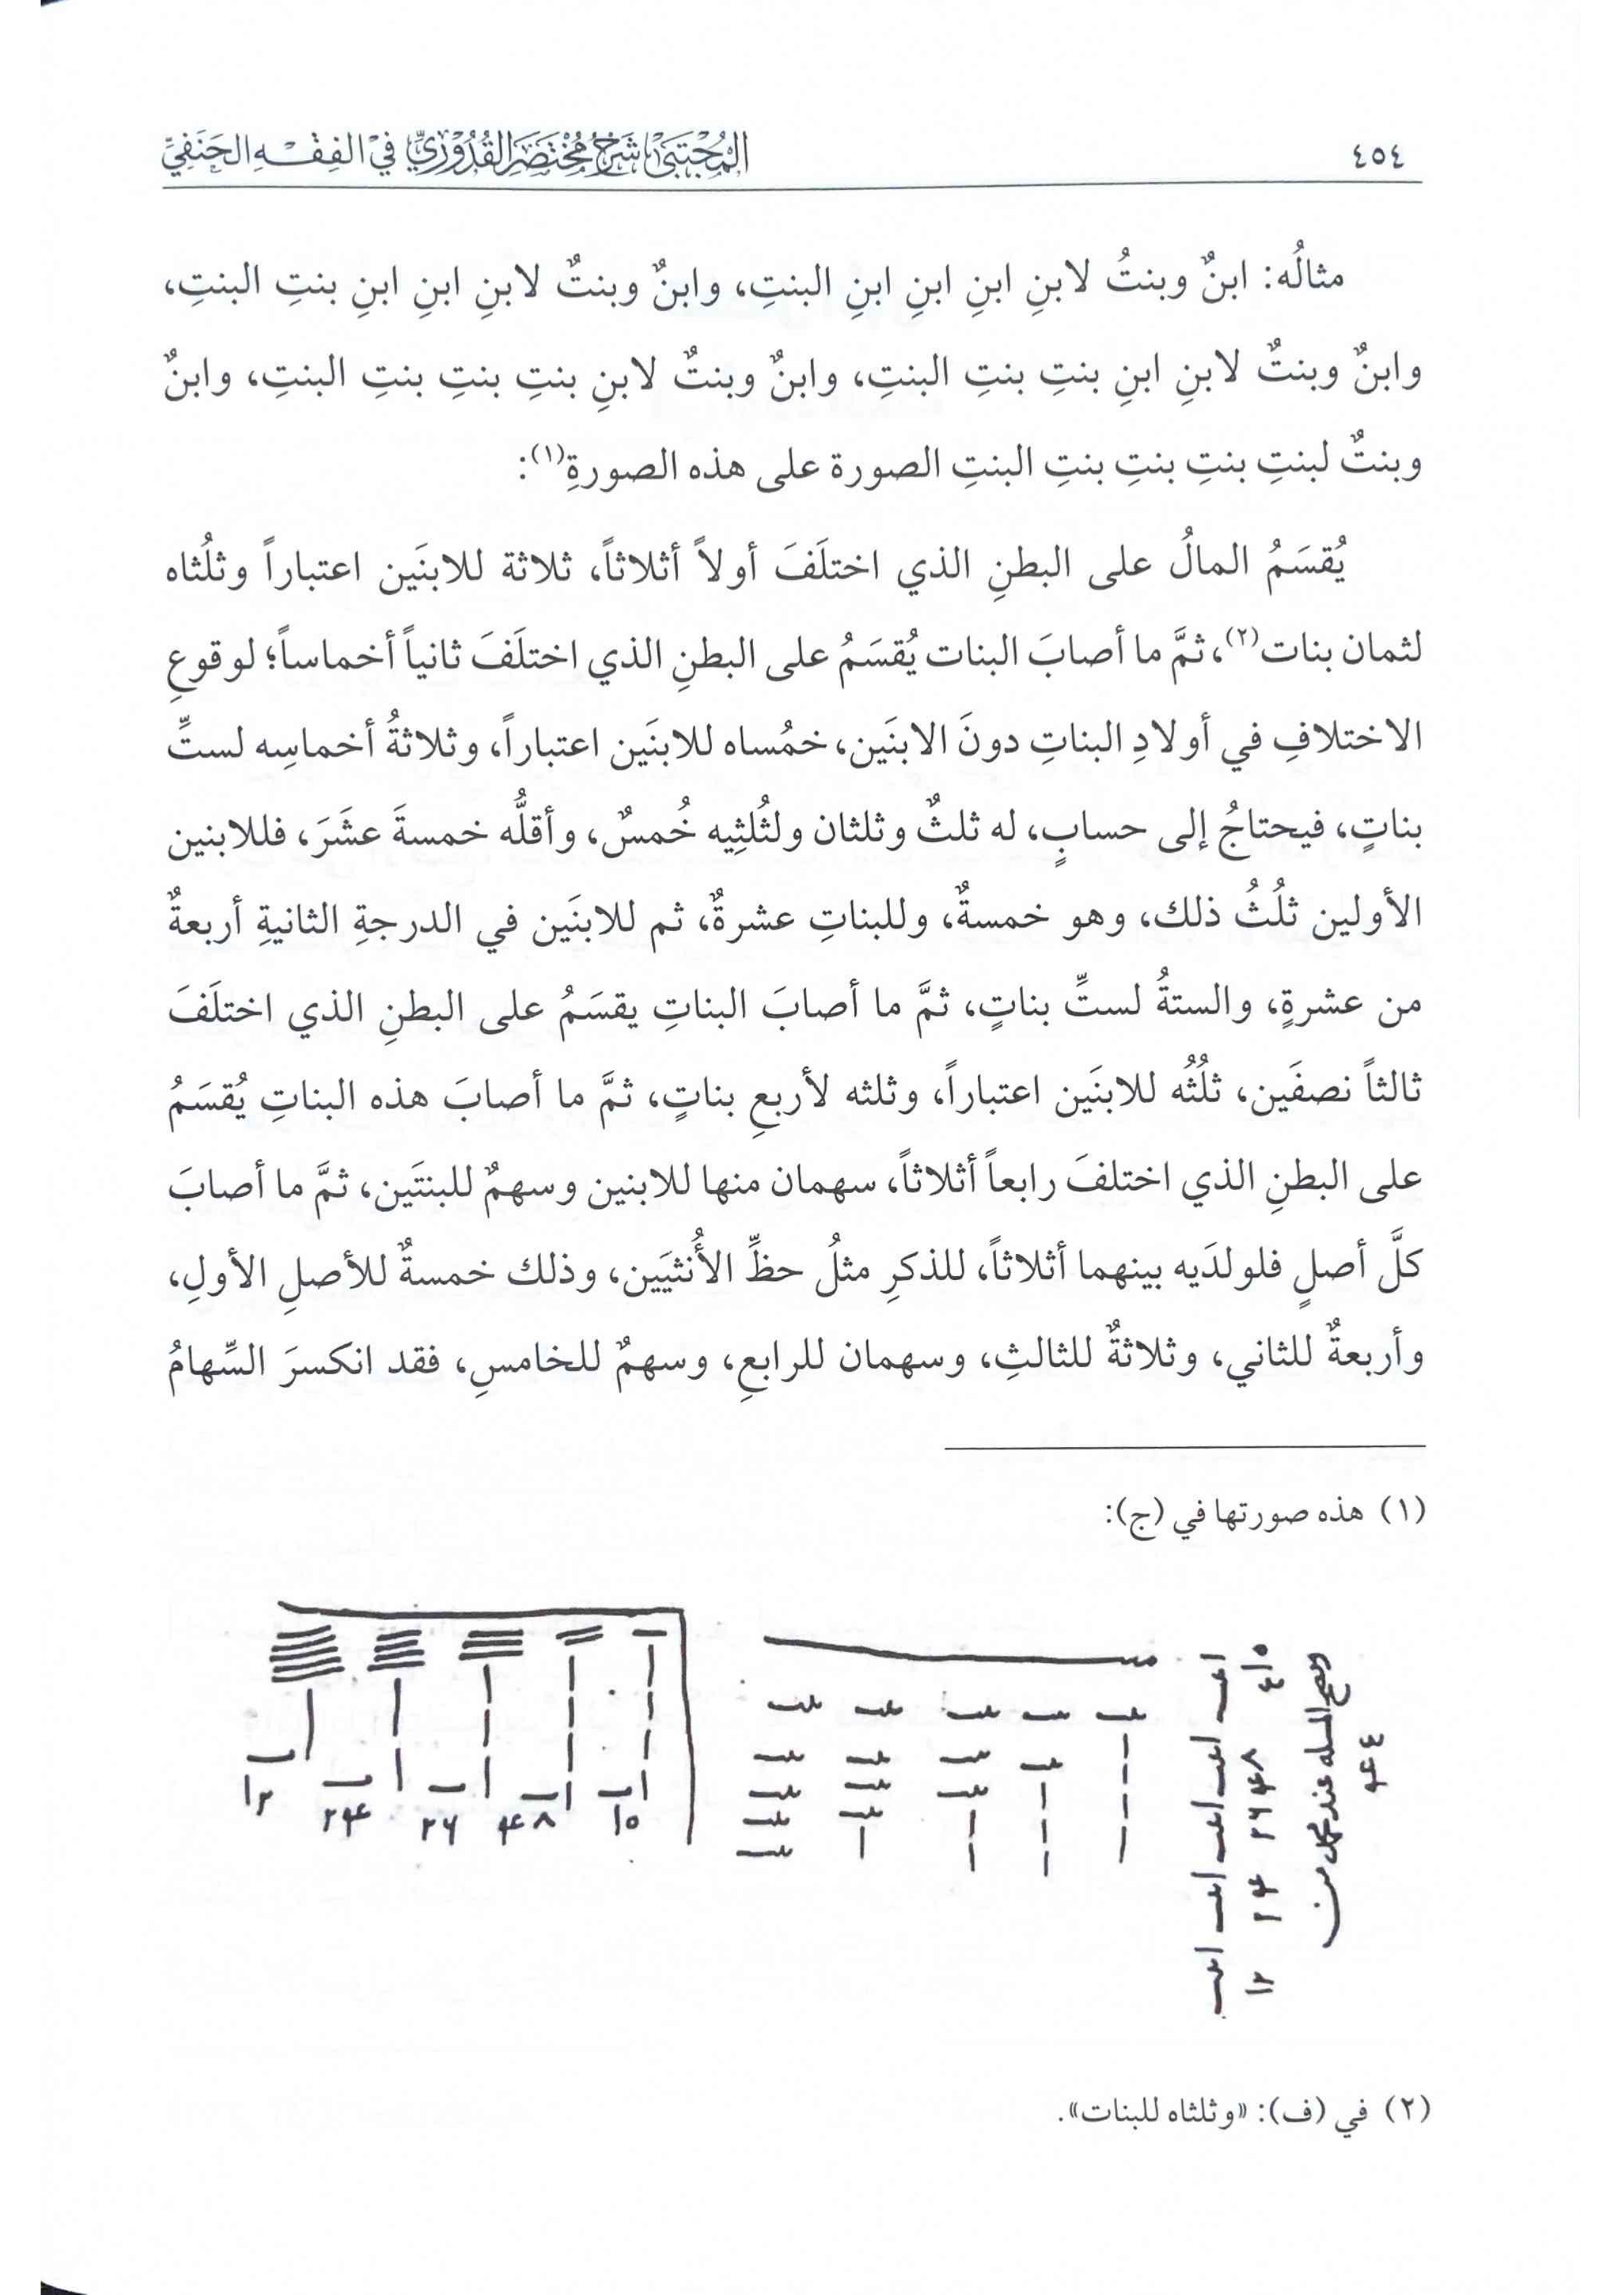 ٤٥٤
المُجْتَبَى شَرْحُ مُخْتَصَرِ القُدُوْرِيِّ فِيْ الفِقْهِ الحَنَفِيِّ
مثالُه: ابنٌ وبنتُ لابنِ ابنِ ابنِ ابنِ البنتِ، وابنٌ وبنتٌ لابنِ ابنِ ابنِ بنتِ البنتِ،
وابنٌ وبنتٌ لابنِ ابنِ بنتِ بنتِ البنتِ، وابنٌ وبنتٌ لابنِ بنتِ بنتِ بنتِ البنتِ، وابنٌ
وبنتٌ لبنتِ بنتِ بنتِ بنتِ البنتِ الصورة على هذه الصورةِ(١):
يُقسَمُ المالُ على البطنِ الذي اختلَفَ أولاً أثلاثاً، ثلاثة للابنَين اعتباراً وثلُثاه
لثمان بنات(٢)، ثمَّ ما أصابَ البنات يُقسَمُ على البطنِ الذي اختلَفَ ثانياً أخماساً؛ لوقوعِ
الاختلافِ في أولادِ البناتِ دونَ الابنَين، خمُساه للابنَين اعتباراً، وثلاثةُ أخماسِه لستِّ
بناتٍ، فيحتاجُ إلى حسابٍ، له ثلثٌ وثلثان ولثُلثِيه خُمسٌ، وأقلُّه خمسةَ عشَرَ، فللابنين
الأولين ثلُثُ ذلك، وهو خمسةٌ، وللبناتِ عشرةٌ، ثم للابنَين في الدرجةِ الثانيةِ أربعةٌ
من عشرةٍ، والستةُ لستِّ بناتٍ، ثمَّ ما أصابَ البناتِ يقسَمُ على البطنِ الذي اختلَفَ
ثالثاً نصفَين، ثلُثُه للابنَين اعتباراً، وثلثه لأربعِ بناتٍ، ثمَّ ما أصابَ هذه البناتِ يُقسَمُ
على البطنِ الذي اختلفَ رابعاً أثلاثاً، سهمان منها للابنين وسهمٌ للبنتَين، ثمَّ ما أصابَ
كلَّ أصلٍ فلولدَيه بينهما أثلاثاً، للذكرِ مثلُ حظِّ الأُنثيَين، وذلك خمسةٌ للأصلِ الأولِ،
وأربعةٌ للثاني، وثلاثةٌ للثالثِ، وسهمان للرابعِ، وسهمٌ للخامسِ، فقد انكسرَ السِّهامُ
(١) هذه صورتها في (ج):
(٢) في (ف): «وثلثاه للبنات».